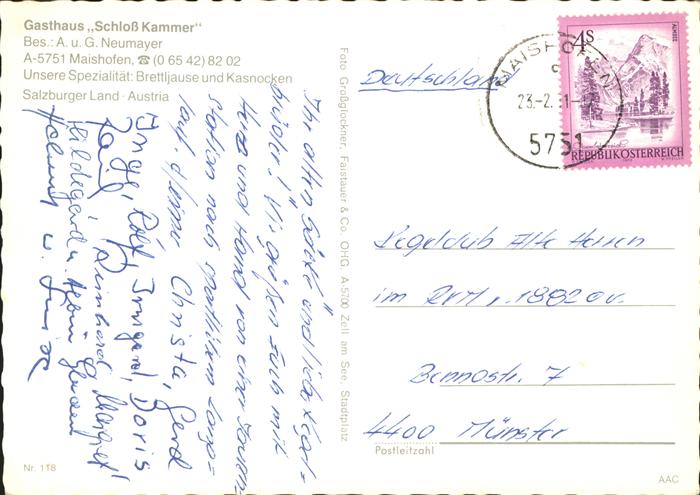 Gasthaus „Schloß Kammer“
Bes.: A. u. G. Neumayer
A-5751 Maishofen, ☎ (0 65 42) 82 02
Unsere Spezialität: Brettljause und Kasnocken
Salzburger Land · Austria
Ihr alten Säcke und liebe Kegel-
brüder! Wir grüßen Euch mit
Herz und Hand von einer Jausen-
station nach sportlichem Lang-
lauf. Heinz Christa, Gerd
Inge, Rolf, Irmgard, Doris
Reinhard, Margret
Hildegard u.
Helmut u.
Nr. 118
Foto Großglockner, Faistauer & Co. OHG, A-5700 Zell am See, Stadtplatz
Deutschland
MAISHOFEN
23.-2.
5751
4S
ALMSEE
REPUBLIK ÖSTERREICH
Kegelclub Alte Herren
im RTV v. 1862 e.V.
Bennostr. 7
4400 Münster
Postleitzahl
AAC